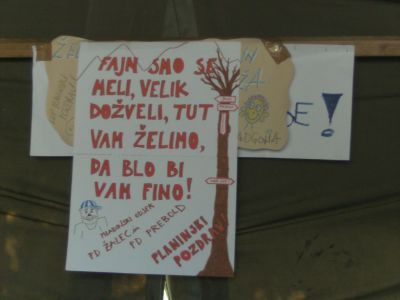 FAJN SMO SE
MELI, VELIK
DOŽVELI, TUT
VAM ŽELIMO,
DA BLO BI
VAM FINO!
MLADINSKI ODSEK
PD ŽALEC in PD PREBOLD
PLANINSKI
POZDRAV
ŽA
ADGONA
SE!